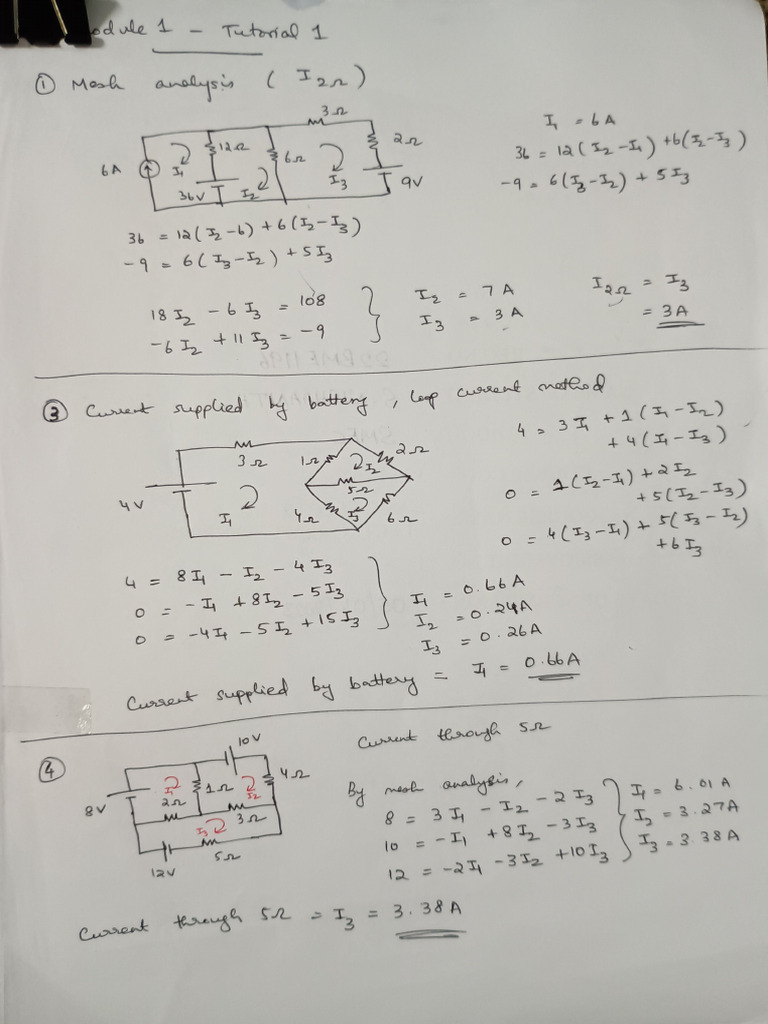 odule 1 - Tutorial 1
① Mesh analysis ( I2Ω )
3Ω
12Ω
6Ω
2Ω
6A
I1
36V
I2
I3
9V
I1 = 6A
36 = 12(I2-I1) + 6(I2-I3)
-9 = 6(I3-I2) + 5I3
36 = 12(I2-6) + 6(I2-I3)
-9 = 6(I3-I2) + 5I3
18I2 - 6I3 = 108
-6I2 + 11I3 = -9
I2 = 7A
I3 = 3A
I2Ω = I3
= 3A
③ Current supplied by battery, loop current method
3Ω
1Ω
I2
2Ω
5Ω
4V
I1
4Ω
I3
6Ω
4 = 3I1 + 1(I1-I2)
+ 4(I1-I3)
0 = 1(I2-I1) + 2I2
+ 5(I2-I3)
0 = 4(I3-I1) + 5(I3-I2)
+ 6I3
4 = 8I1 - I2 - 4I3
0 = -I1 + 8I2 - 5I3
0 = -4I1 - 5I2 + 15I3
I1 = 0.66A
I2 = 0.24A
I3 = 0.26A
Current supplied by battery = I1 = 0.66A
④
10V
I1
1Ω
I2
4Ω
8V
2Ω
3Ω
I3
5Ω
12V
Current through 5Ω
By mesh analysis,
8 = 3I1 - I2 - 2I3
10 = -I1 + 8I2 - 3I3
12 = -2I1 - 3I2 + 10I3
I1 = 6.01A
I2 = 3.27A
I3 = 3.38A
Current through 5Ω = I3 = 3.38A